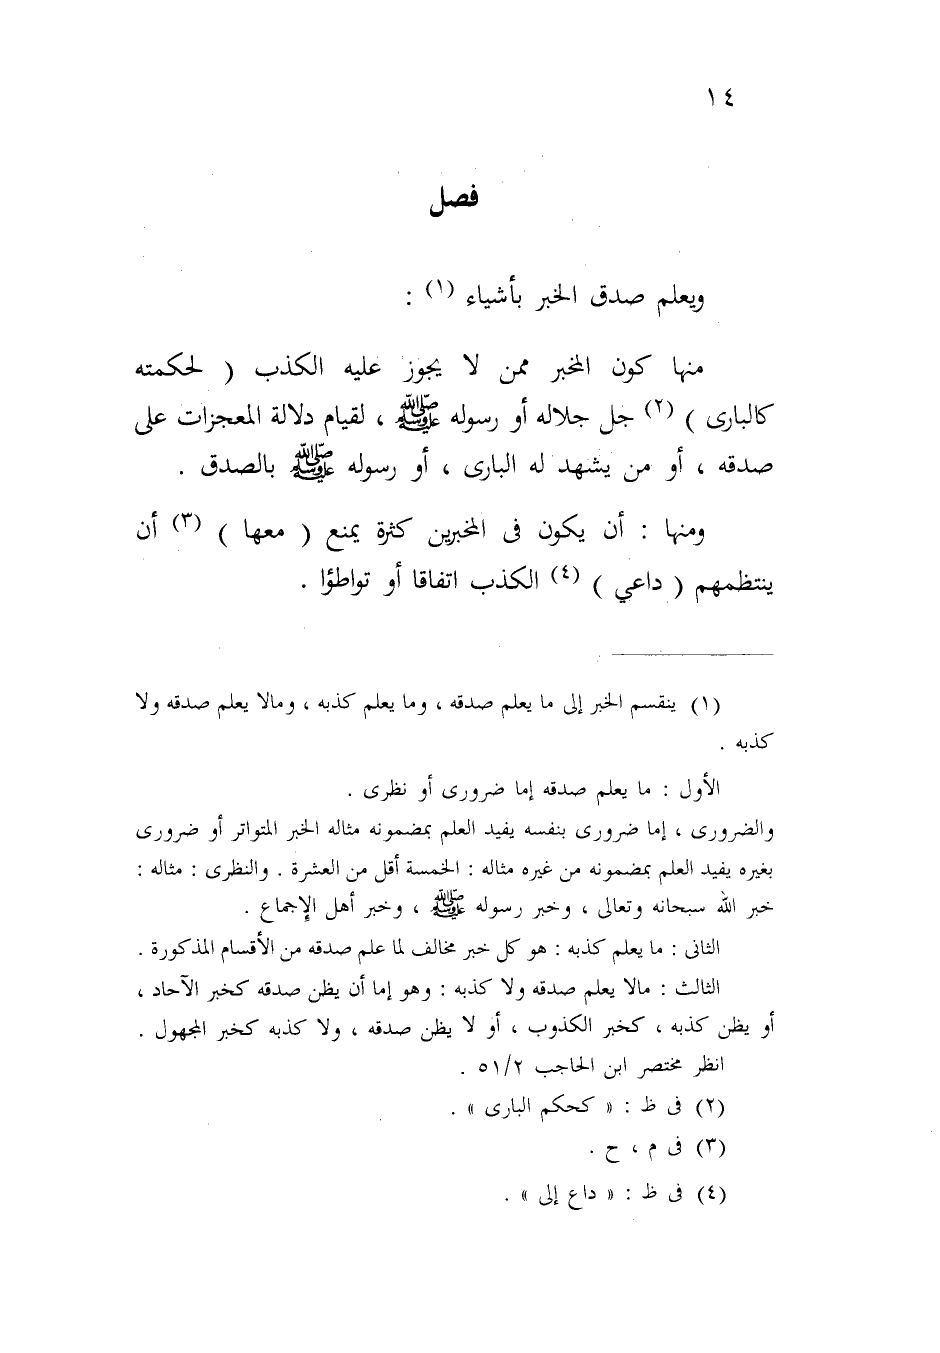 ١٤
فصل
ويعلم صدق الخبر بأشياء (١) :
منها كون المخبر ممن لا يجوز عليه الكذب ( لحكمته
كالبارى ) (٢) جل جلاله أو رسوله ﷺ ، لقيام دلالة المعجزات على
صدقه ، أو من يشهد له البارى ، أو رسوله ﷺ بالصدق .
ومنها : أن يكون فى المخبرين كثرة يمنع ( معها ) (٣) أن
ينتظمهم ( داعي ) (٤) الكذب اتفاقا أو تواطؤا .
(١) ينقسم الخبر إلى ما يعلم صدقه ، وما يعلم كذبه ، ومالا يعلم صدقه ولا
كذبه .
الأول : ما يعلم صدقه إما ضرورى أو نظرى .
والضرورى ، إما ضرورى بنفسه يفيد العلم بمضمونه مثاله الخبر المتواتر أو ضرورى
بغيره يفيد العلم بمضمونه من غيره مثاله : الخمسة أقل من العشرة . والنظرى : مثاله :
خبر الله سبحانه وتعالى ، وخبر رسوله ﷺ ، وخبر أهل الإجماع .
الثانى : ما يعلم كذبه : هو كل خبر مخالف لما علم صدقه من الأقسام المذكورة .
الثالث : مالا يعلم صدقه ولا كذبه : وهو إما أن يظن صدقه كخبر الآحاد ،
أو يظن كذبه ، كخبر الكذوب ، أو لا يظن صدقه ، ولا كذبه كخبر المجهول .
انظر مختصر ابن الحاجب ٥١/٢ .
(٢) فى ظ : « كحكم البارى » .
(٣) فى م ، ح .
(٤) فى ظ : « داع إلى » .